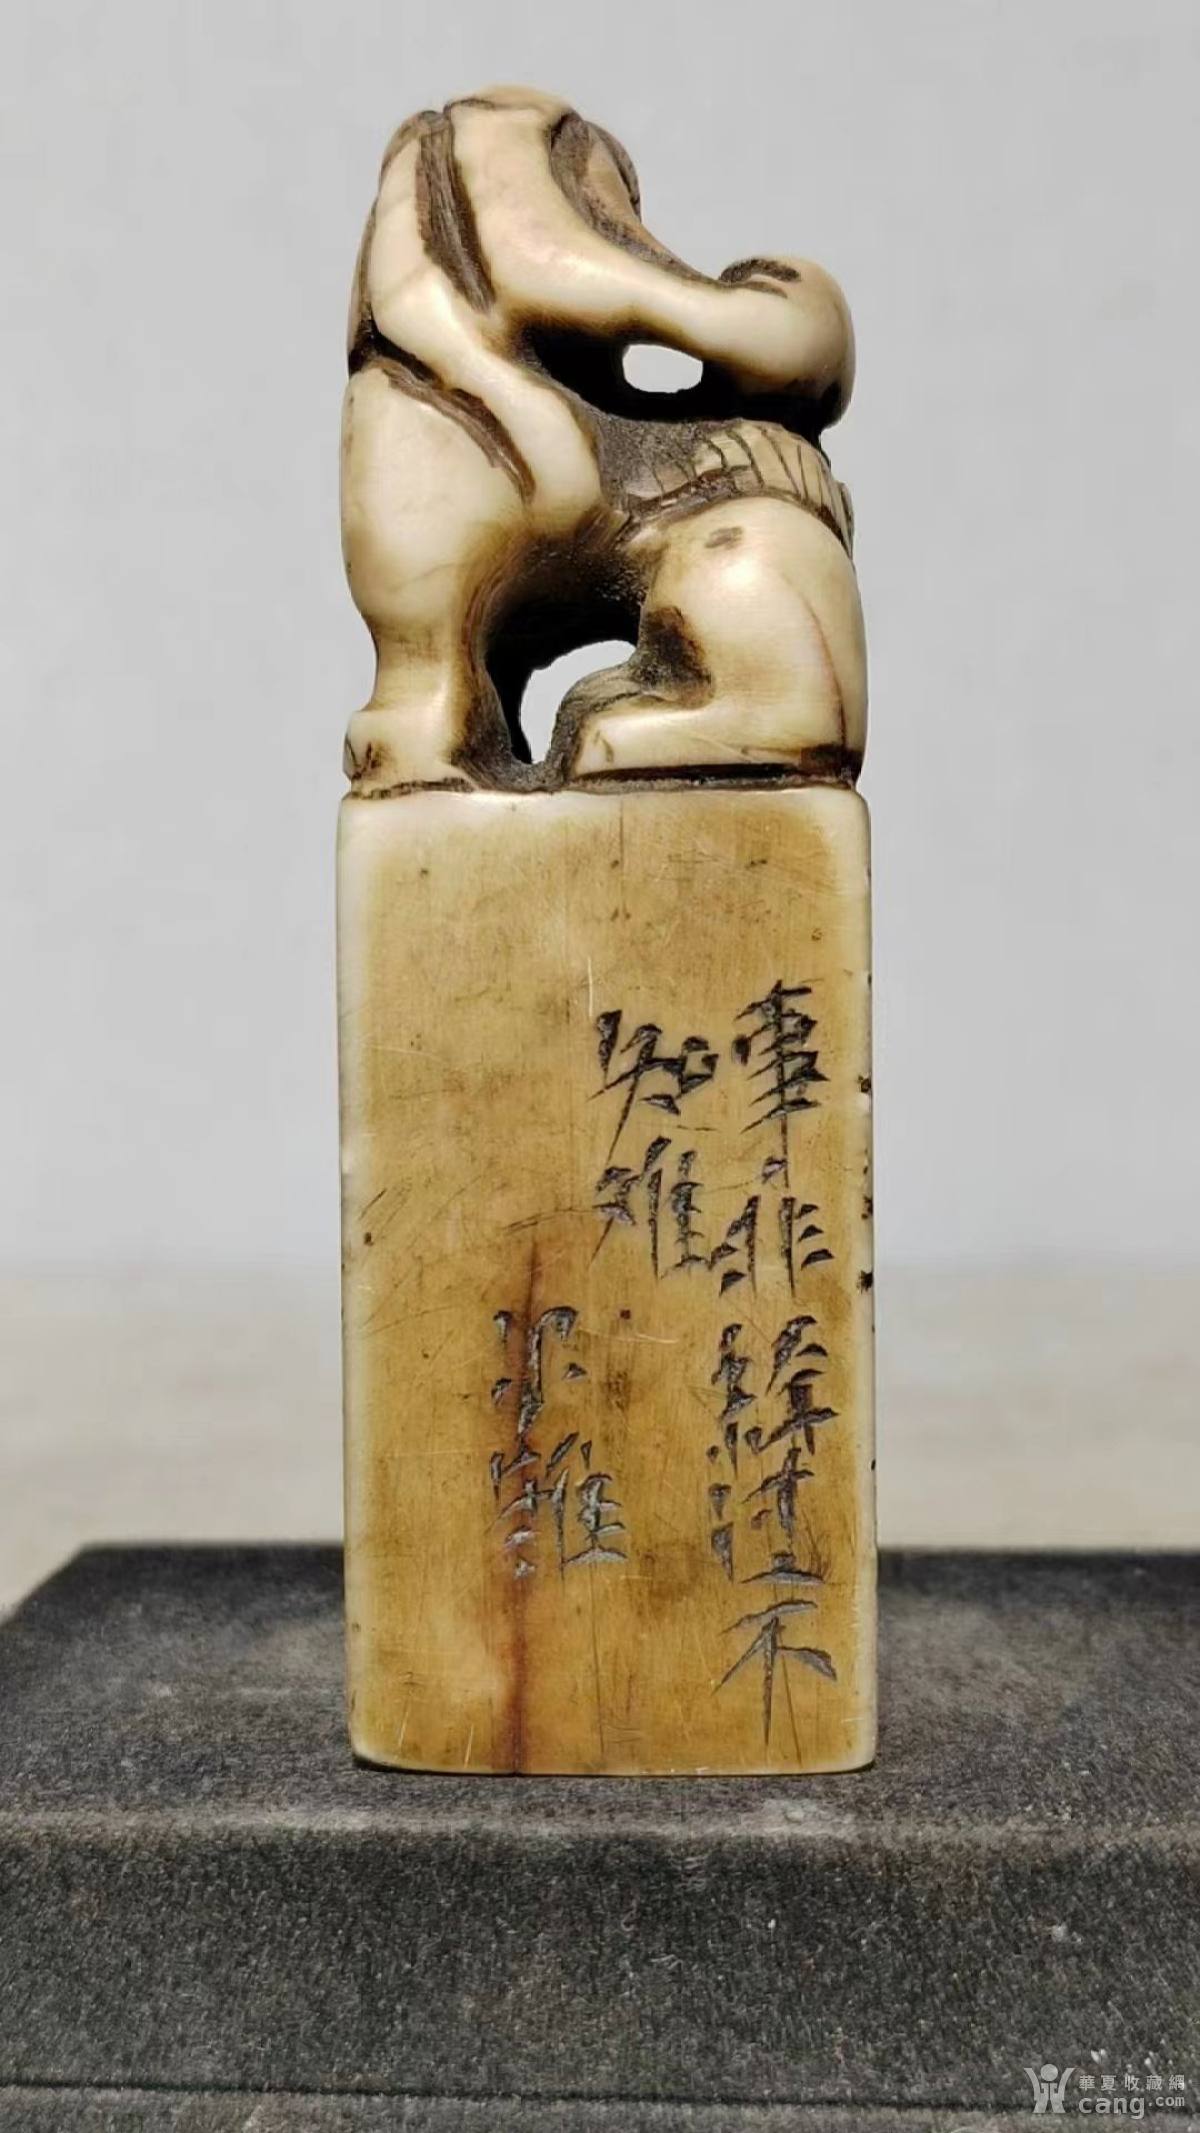 事非經過不
知難
華夏收藏網
cang.com